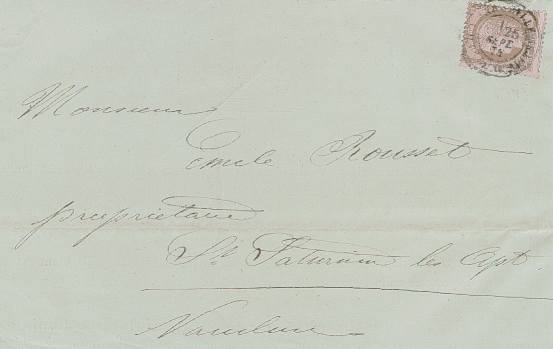 25
SEPT
Monsieur
Emile Rousset
propriétaire
St Saturnin les Apt
Vaucluse